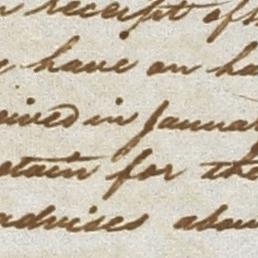 n receipt of
have on ha
eived in Januar
etain for the
advises abou